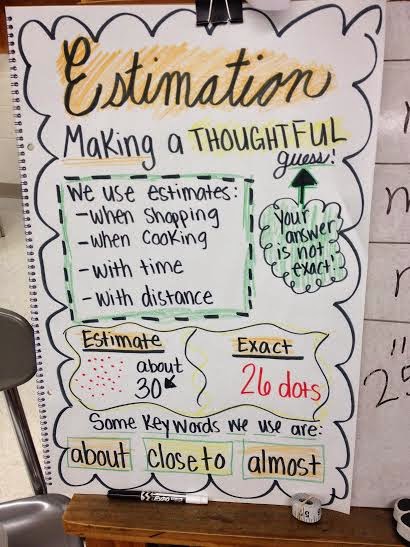 Estimation
Making a THOUGHTFUL
guess!
We use estimates:
- when Shopping
- when Cooking
- with time
- with distance
Your
answer
is not
exact!
Estimate
about
30
Exact
26 dots
Some Key Words we use are:
about
close to
almost
EXPO